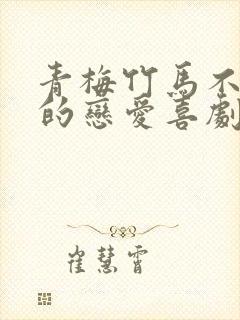 青梅竹馬不
的戀愛喜劇
崔慧霄